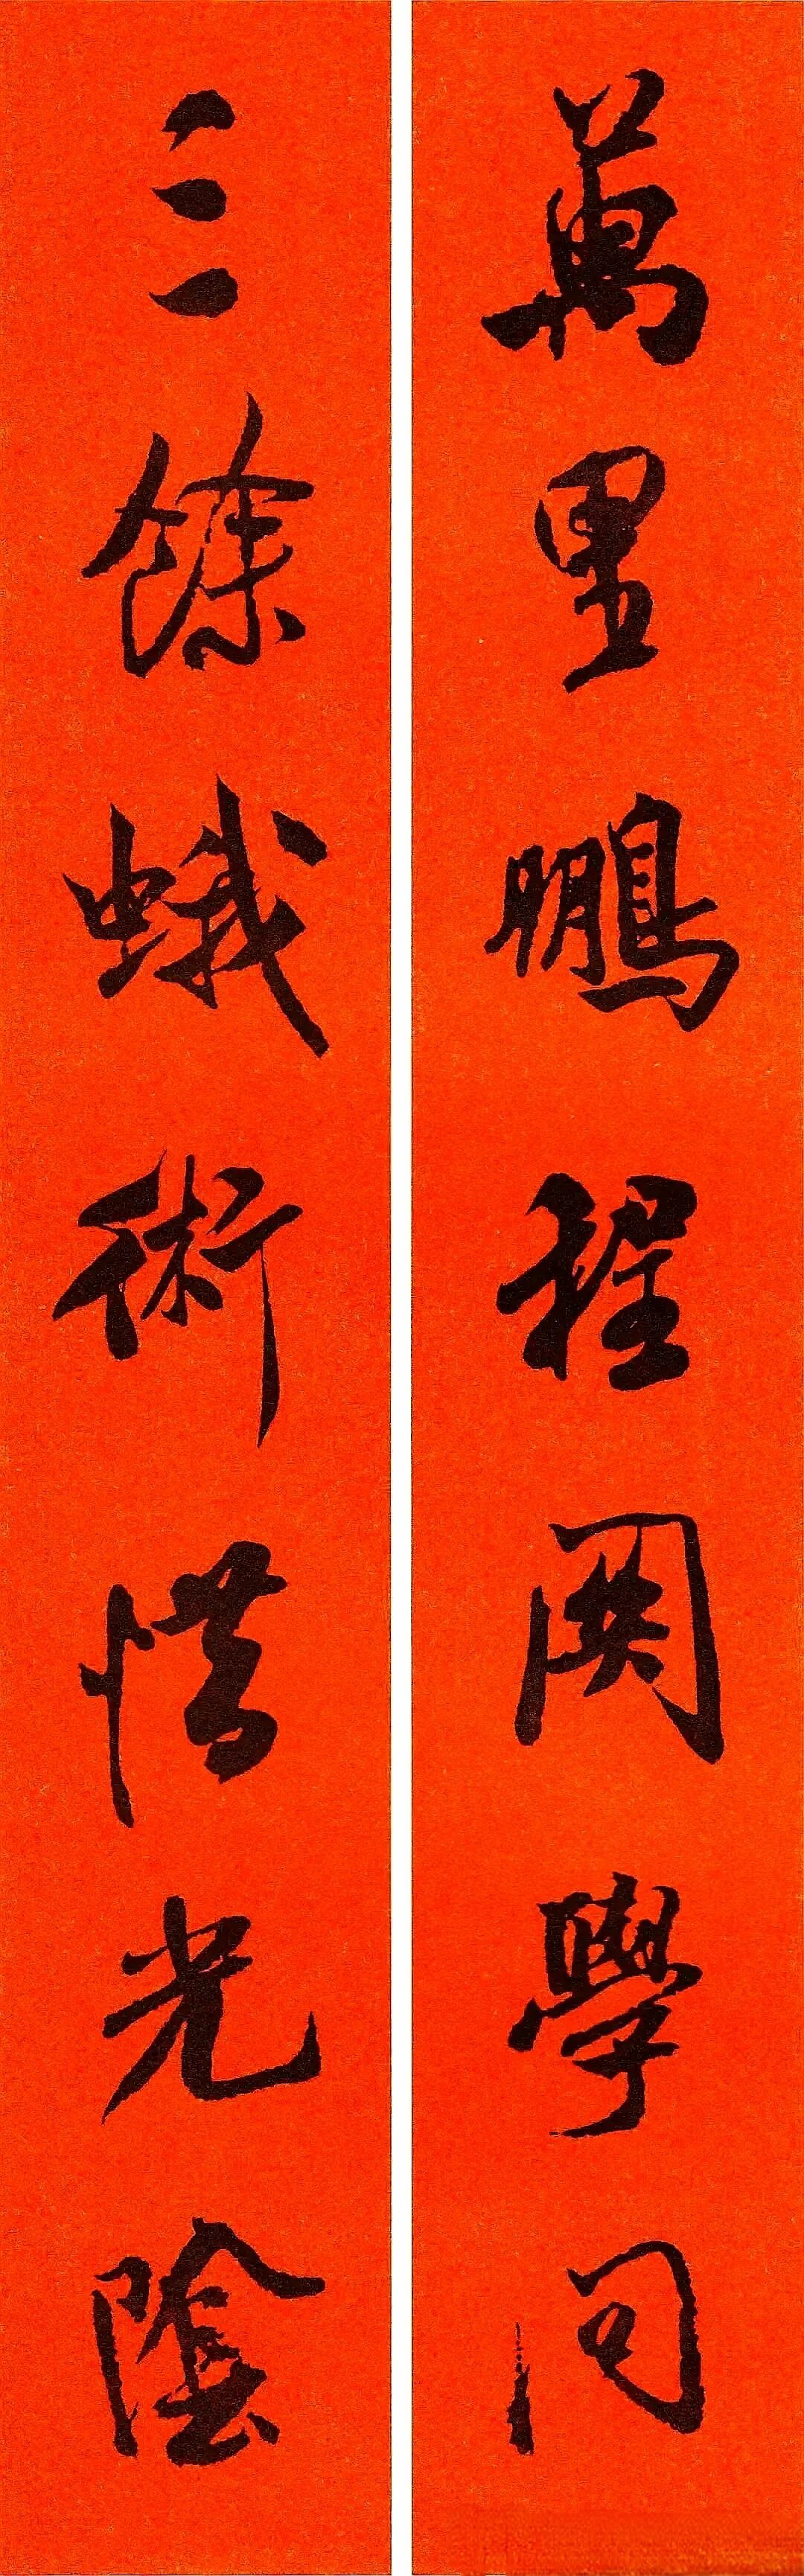 萬里鵬程關學問
三餘蛾術惜光陰